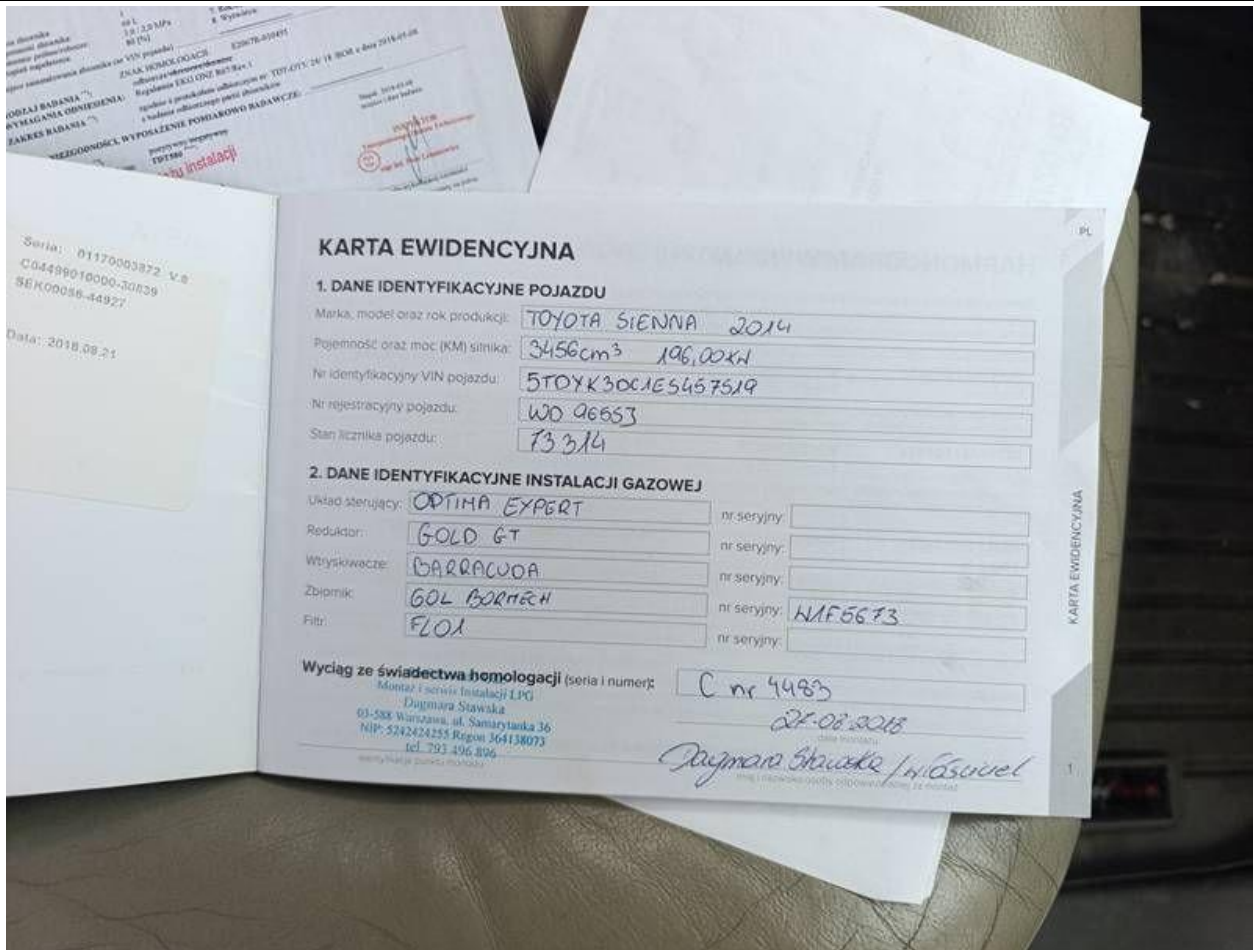 60 L
3,0 / 2,0 MPa
80 [%]
ZNAK HOMOLOGACJI:
E2067R-010491
RODZAJ BADANIA
WYMAGANIA ODNIESIENIA:
Regulamin EKG ONZ R67/Rev.1
ZAKRES BADANIA
WYPOSAŻENIE POMIAROWO BADAWCZE:
TDT580
instalacji
Seria: 01170003872 V.8
C04499010000-30839
SEK00056-44927
Data: 2018.08.21
PL
KARTA EWIDENCYJNA
1. DANE IDENTYFIKACYJNE POJAZDU
Marka, model oraz rok produkcji: TOYOTA SIENNA 2014
Pojemność oraz moc (KM) silnika: 3456cm³ 196,00KW
Nr identyfikacyjny VIN pojazdu: 5TDYK3DC1ES457519
Nr rejestracyjny pojazdu: WD 96553
Stan licznika pojazdu: 73 314
2. DANE IDENTYFIKACYJNE INSTALACJI GAZOWEJ
Układ sterujący: OPTIMA EXPERT nr seryjny:
Reduktor: GOLD GT nr seryjny:
Wtryskiwacze: BARRACUDA nr seryjny:
Zbiornik: 60L BORMECH nr seryjny: W1F5673
Filtr: FL01 nr seryjny:
Wyciąg ze świadectwa homologacji (seria i numer): C nr 4483
Montaż i serwis Instalacji LPG
Dagmara Stawska
03-588 Warszawa, ul. Samarytanka 36
NIP: 5242424255 Regon 364138073
tel. 793 496 896
identyfikacja punktu montażu
27-08-2018
data montażu
Dagmara Stawska / właściciel
imię i nazwisko osoby odpowiedzialnej za montaż
KARTA EWIDENCYJNA
1